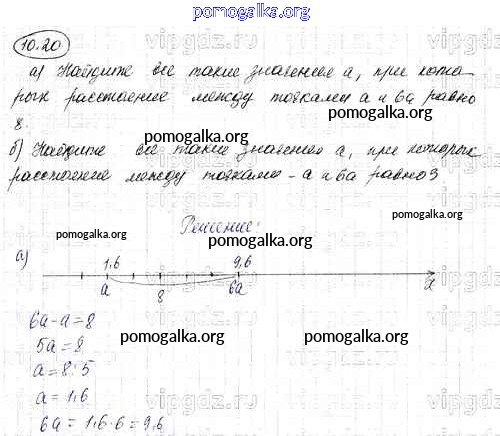 pomogalka.org
10.20
а) Найдите все такие значения а, при кото-
рых расстояние между точками а и 6а равно
8.
pomogalka.org
pomogalka.org
б) Найдите все такие значения а, при которых
расстояние между точками -а и 6а равно 3
pomogalka.org
Решение:
pomogalka.org
pomogalka.org
а)
1,6 9,6
а 8 6а x
6а-а=8
5а=8
pomogalka.org
pomogalka.org
а=8:5
а=1,6
6а=1,6·6=9,6
pomogalka.org